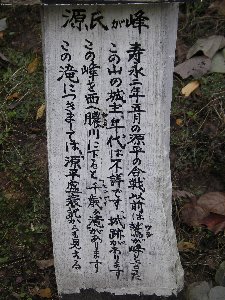 源氏が峰
寿永二年五月の源平の合戦以前は鷲が峰といった
この山の城主、年代は不詳です 城跡があります
この峰を西へ膿川に下ると千歳ヶ滝があります
この滝につきましては、源平盛衰記からも見える